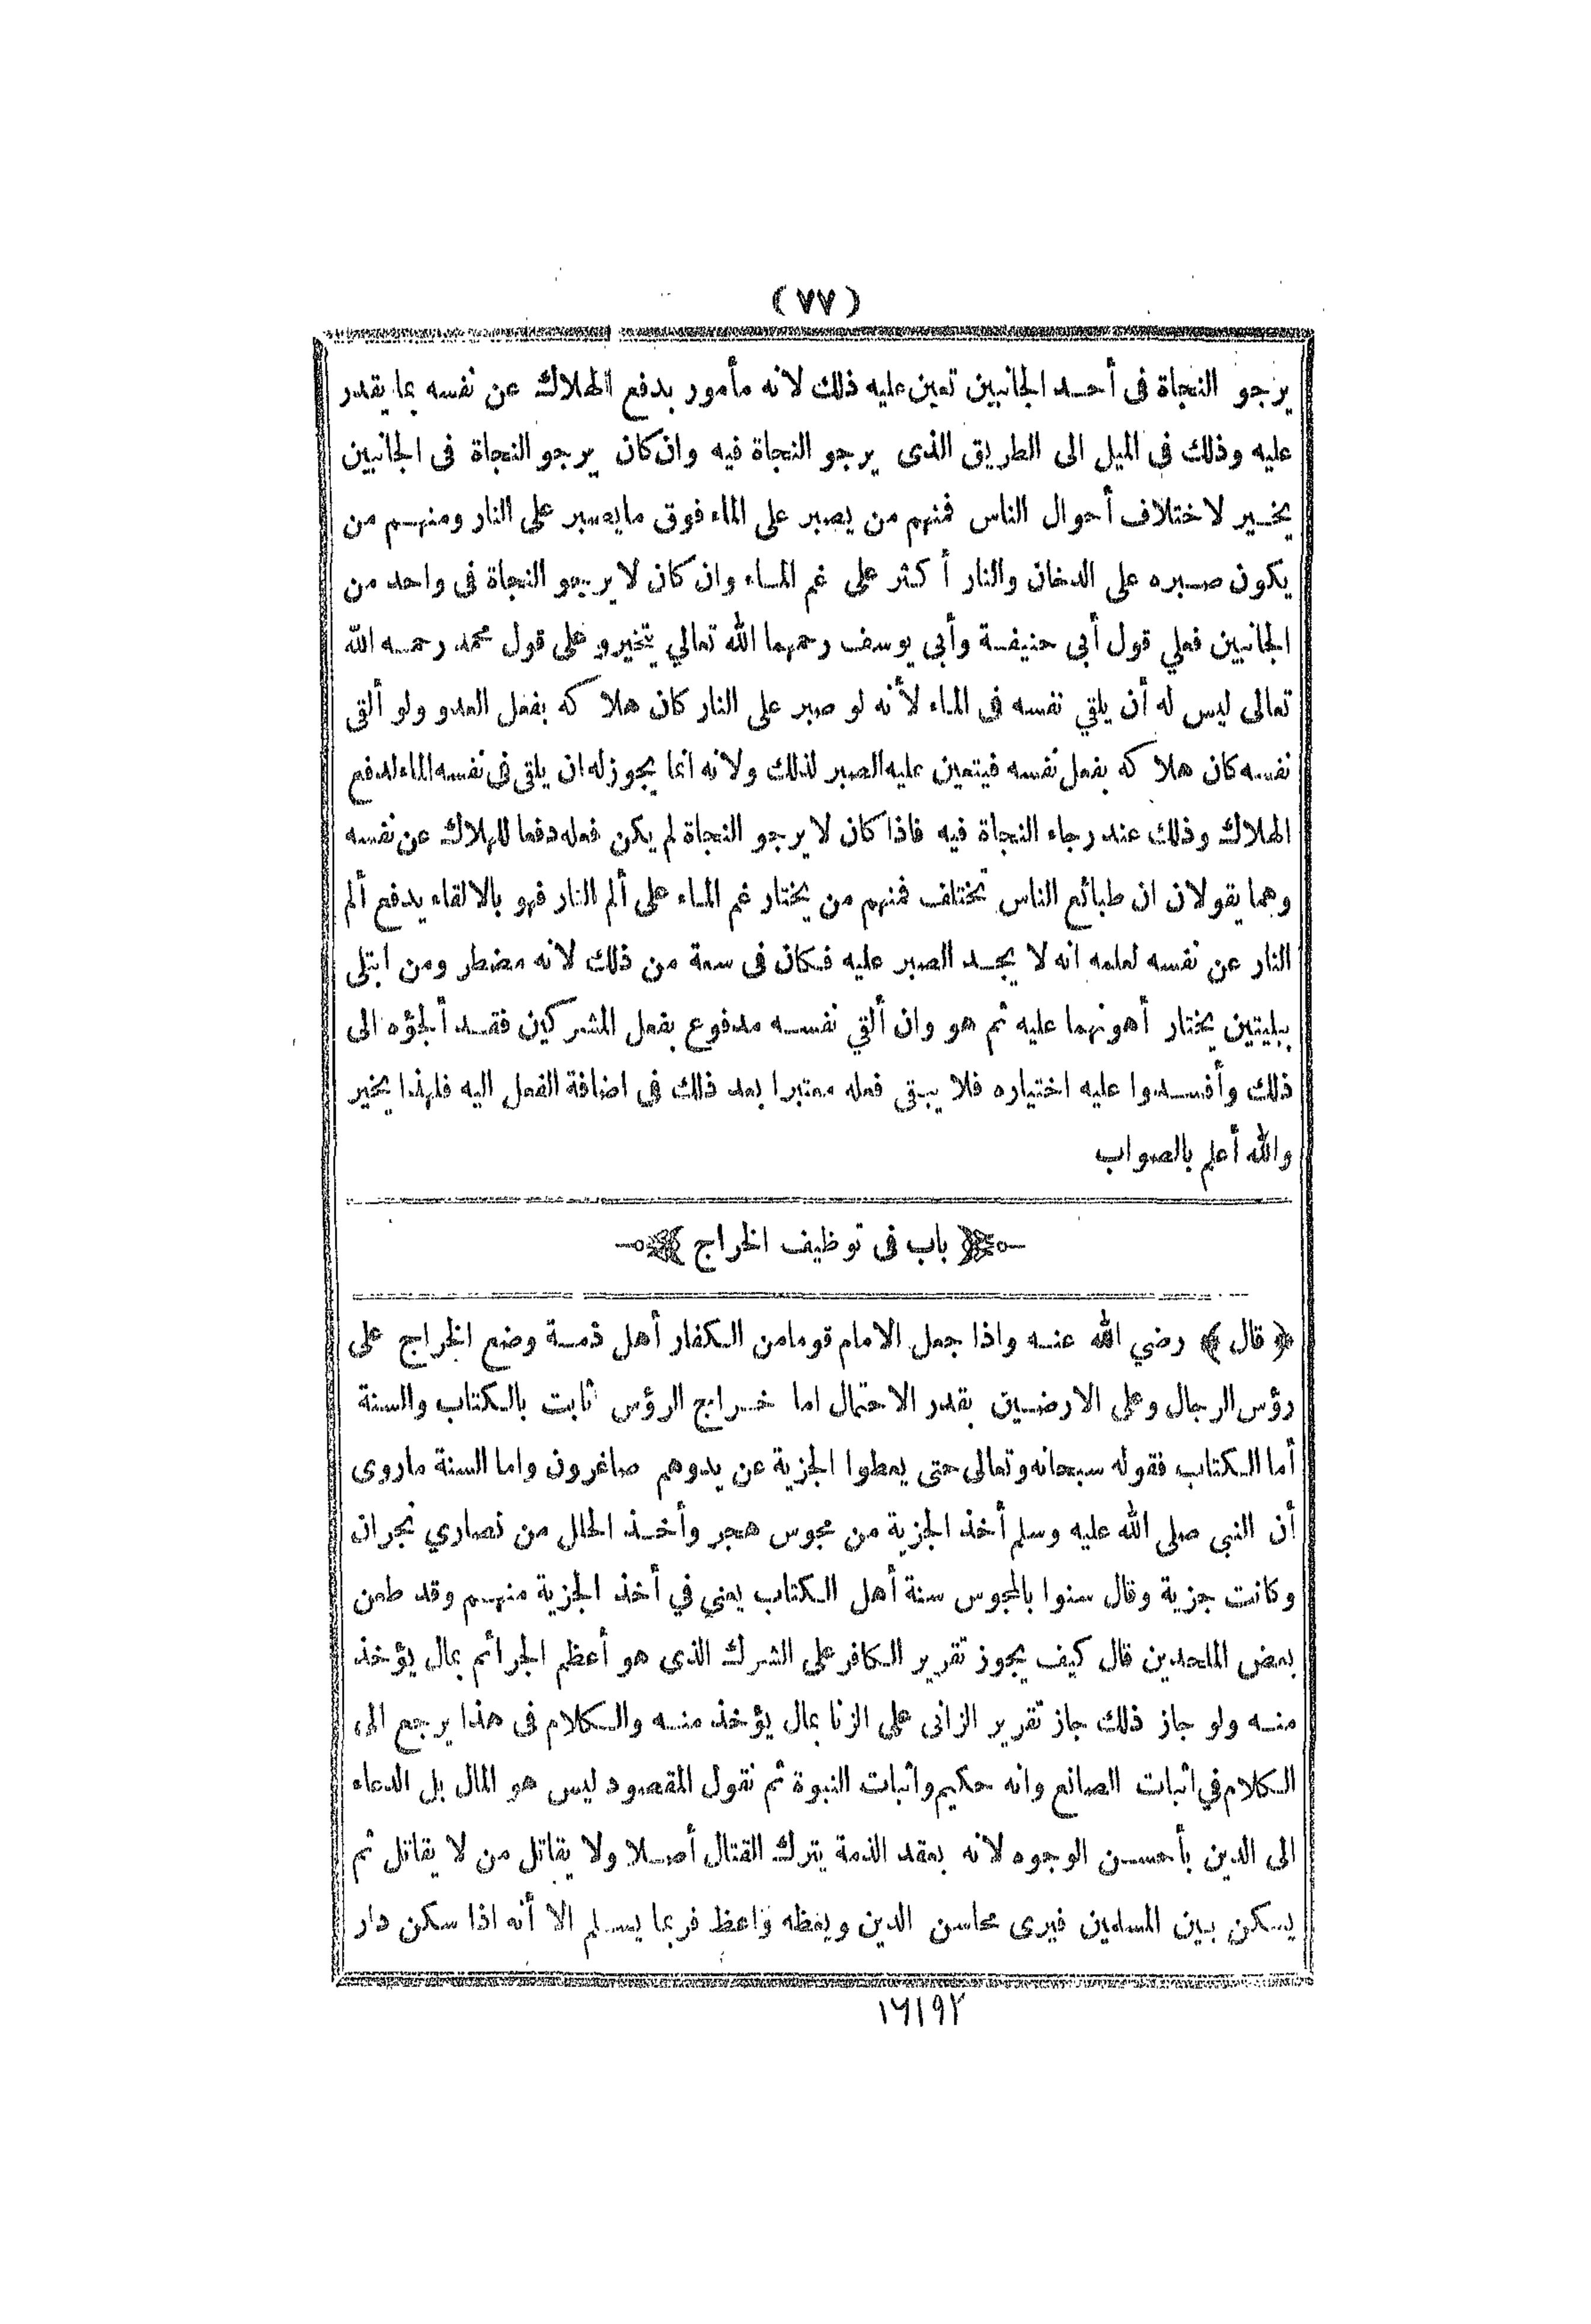 (٧٧)
يرجو النجاة فى أحد الجانبين تعين عليه ذلك لانه مأمور بدفع الهلاك عن نفسه بما يقدر
عليه وذلك فى الميل الى الطريق الذى يرجو النجاة فيه وان كان يرجو النجاة فى الجانبين
يخير لاختلاف أحوال الناس فمنهم من يصبر على الماء فوق ما يصبر على النار ومنهم من
يكون صبره على الدخان والنار أكثر على غم الماء وان كان لا يرجو النجاة فى واحد من
الجانبين فعلي قول أبى حنيفة وأبى يوسف رحمهما الله تعالي يتخير وعلى قول محمد رحمه الله
تعالى ليس له أن يلقي نفسه فى الماء لأنه لو صبر على النار كان هلاكه بفعل العدو ولو ألقى
نفسه كان هلاكه بفعل نفسه فيتعين عليه الصبر لذلك ولانه انما يجوز له ان يلقى فى نفسه الماء لدفع
الهلاك وذلك عند رجاء النجاة فيه فاذا كان لا يرجو النجاة لم يكن فعله دفعا للهلاك عن نفسه
وهما يقولان ان طبائع الناس تختلف فمنهم من يختار غم الماء على ألم النار فهو بالالقاء يدفع ألم
النار عن نفسه لعلمه انه لا يجد الصبر عليه فكان فى سعة من ذلك لانه مضطر ومن ابتلى
ببليتين يختار أهونهما عليه ثم هو وان ألقي نفسه مدفوع بفعل المشركين فقد ألجؤه الى
ذلك وأفسدوا عليه اختياره فلا يبقى فعله معتبرا بعد ذلك فى اضافة الفعل اليه فلهذا يخير
والله أعلم بالصواب
باب فى توظيف الخراج
﴿ قال ﴾ رضي الله عنه واذا جعل الامام قوما من الكفار أهل ذمة وضع الخراج على
رؤس الرجال وعلى الارضين بقدر الاحتمال اما خراج الرؤس ثابت بالكتاب والسنة
أما الكتاب فقوله سبحانه وتعالى حتى يعطوا الجزية عن يد وهم صاغرون واما السنة ماروى
أن النبي صلى الله عليه وسلم أخذ الجزية من مجوس هجر وأخذ الحلل من نصاري نجران
وكانت جزية وقال سنوا بالمجوس سنة أهل الكتاب يعني في أخذ الجزية منهم وقد طعن
بعض الملحدين قال كيف يجوز تقرير الكافر على الشرك الذى هو أعظم الجرائم بمال يؤخذ
منه ولو جاز ذلك جاز تقرير الزانى على الزنا بمال يؤخذ منه والكلام فى هذا يرجع الى
الكلام في اثبات الصانع وانه حكيم واثبات النبوة ثم نقول المقصود ليس هو المال بل الدعاء
الى الدين بأحسن الوجوه لانه بعقد الذمة يترك القتال أصلا ولا يقاتل من لا يقاتل ثم
يسكن بين المسلمين فيرى محاسن الدين ويعظه واعظ فربما يسلم الا أنه اذا سكن دار
١٦١٩٢